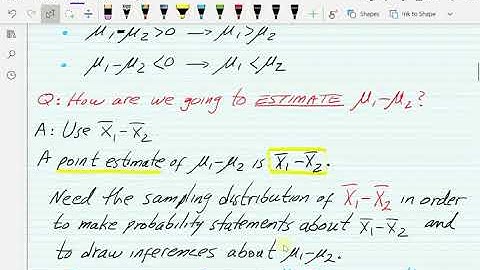 Shapes Ink to Shape
• μ₁-μ₂>0 → μ₁>μ₂
• μ₁-μ₂<0 → μ₁<μ₂
Q: How are we going to ESTIMATE μ₁-μ₂?
A: Use X̄₁-X̄₂
A point estimate of μ₁-μ₂ is X̄₁-X̄₂.
Need the sampling distribution of X̄₁-X̄₂ in order
to make probability statements about X̄₁-X̄₂ and
to draw inferences about μ₁-μ₂.